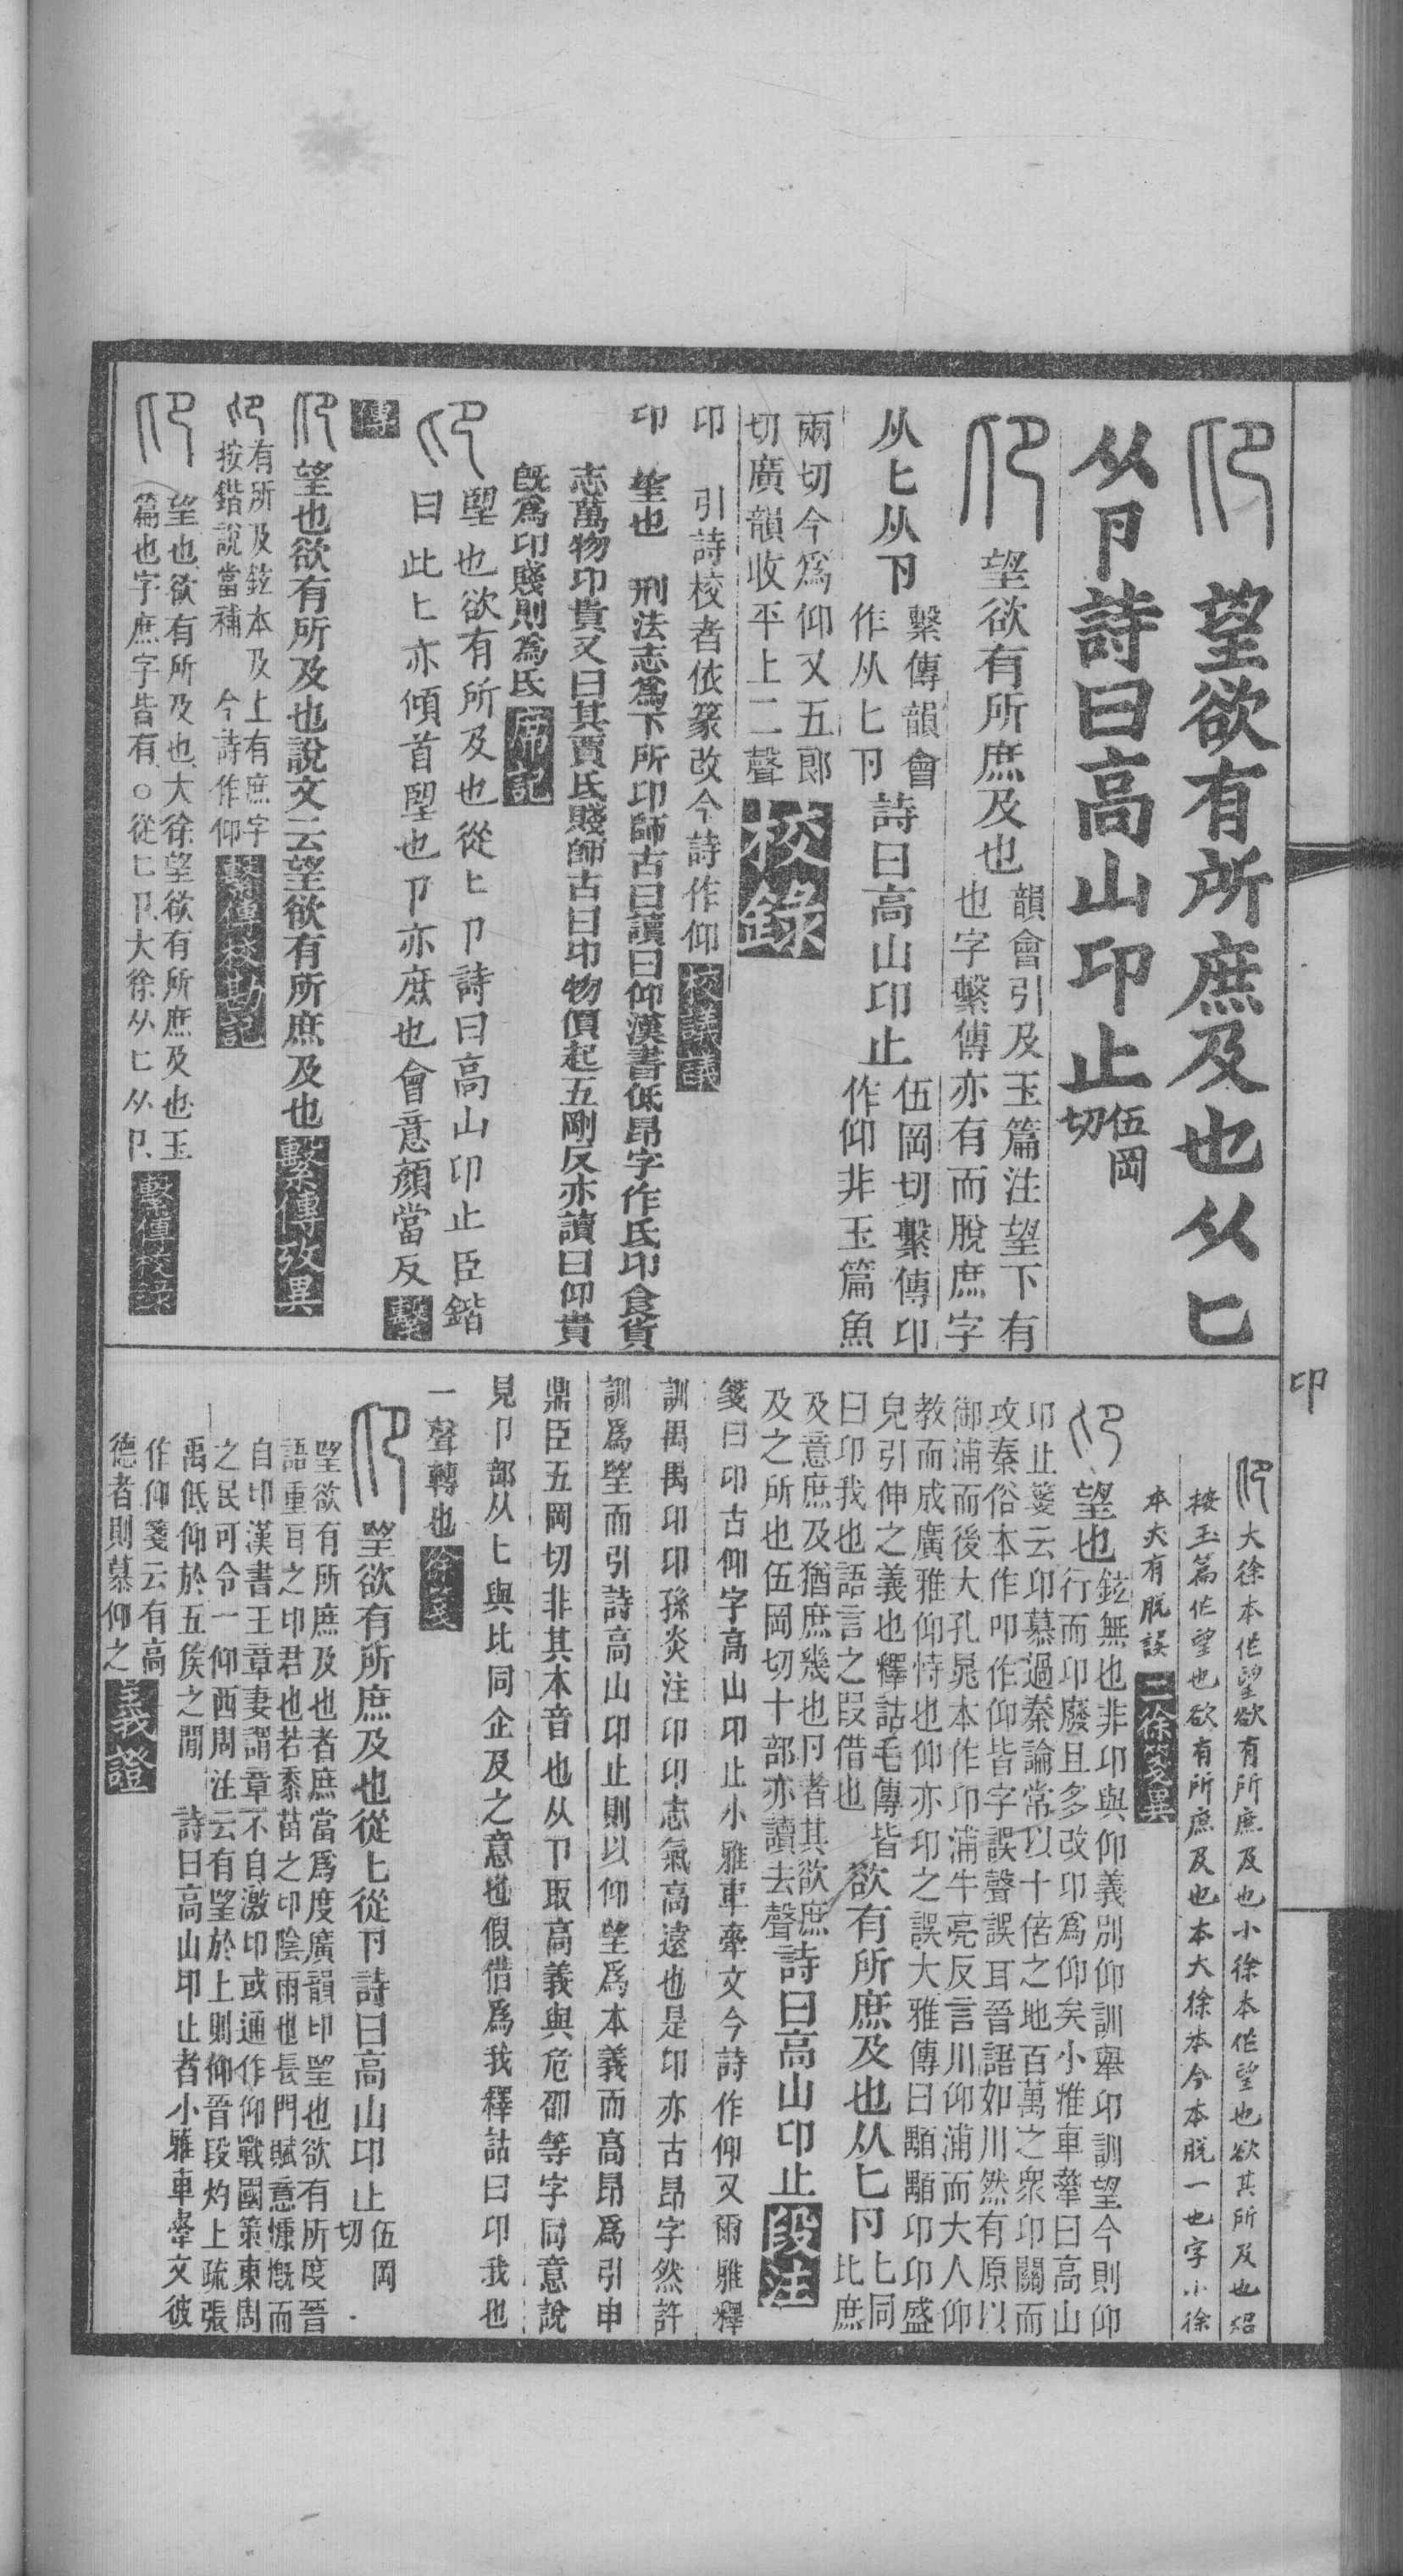 望欲有所庶及也从匕
从卪詩曰高山卬止伍岡切
望欲有所庶及也韻會引及玉篇注望下有
也字繫傳亦有而脫庶字
从匕从卪繫傳韻會
作从匕卪詩曰高山卬止伍岡切繫傳卬
作仰非玉篇魚
兩切今爲仰又五郎
切廣韻收平上二聲校錄
卬　引詩校者依篆改今詩作仰校議議
卬　望也　刑法志爲下所卬師古曰讀曰仰漢書低昂字作氐卬食貨
志萬物卬貴又曰其賈氐賤師古曰卬物價起五剛反亦讀曰仰貴
既爲卬賤則為氐席記
望也欲有所及也從匕卪詩曰高山卬止臣鍇
曰此匕亦傾首望也卪亦庶也會意顏當反繫
傳
望也欲有所及也說文云望欲有所庶及也繫傳攷異
有所及鉉本及上有庶字
按鍇說當補　今詩作仰繫傳校勘記
望也欲有所及也大徐望欲有所庶及也玉
篇也字庶字皆有○從匕卪大徐从匕从卪繫傳校錄
卬
大徐本作望欲有所庶及也小徐本作望也欲其所及也紹
按玉篇作望也欲有所庶及也本大徐本今本脫一也字小徐
本尖有脫誤二徐箋異
望也鉉無也非卬與仰義別仰訓舉卬訓望今則仰
行而卬廢且多改卬爲仰矣小雅車舝曰高山
卬止箋云卬慕過秦論常以十倍之地百萬之衆卬關而
攻秦俗本作叩作仰皆字誤聲誤耳晉語如川然有原以
御浦而後大孔晁本作卬浦牛亮反言川仰浦而大人仰
教而成廣雅仰恃也仰亦卬之誤大雅傳曰顒顒卬卬盛
皃引伸之義也釋詁毛傳皆
曰卬我也語言之叚借也欲有所庶及也从匕卪匕同
比庶
及意庶及猶庶幾也卪者其欲庶
及之所也伍岡切十部亦讀去聲詩曰高山卬止段注
箋曰卬古仰字高山卬止小雅車舝文今詩作仰又爾雅釋
訓禺禺卬卬孫炎注卬卬志氣高遠也是卬亦古昂字然許
訓爲望而引詩高山卬止則以仰望爲本義而高昂爲引申
鼎臣五岡切非其本音也从卪取高義與危卲等字同意說
見卪部从匕與比同企及之意也假借爲我釋詁曰卬我也
一聲轉也徐箋
望欲有所庶及也從匕從卪詩曰高山卬止伍岡
切
望欲有所庶及也者庶當爲度廣韻卬望也欲有所度晉
語重耳之卬君也若黍苗之卬陰雨也長門賦意慷慨而
自卬漢書王章妻謂章不自激卬或通作仰戰國策東周
之民可令一仰西周注云有望於上則仰晉段灼上疏張
禹低仰於五矦之閒　詩曰高山卬止者小雅車舝文彼
作仰箋云有高
德者則慕仰之義證